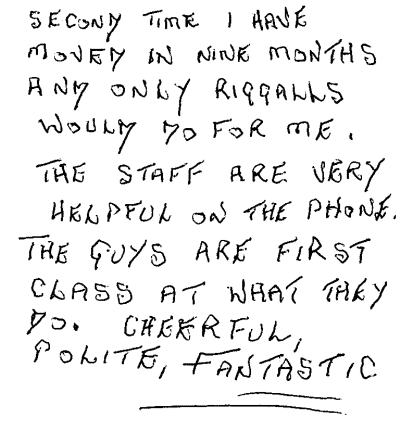 SECOND TIME I HAVE
MOVED IN NINE MONTHS
AND ONLY RIGGALLS
WOULD DO FOR ME.
THE STAFF ARE VERY
HELPFUL ON THE PHONE.
THE GUYS ARE FIRST
CLASS AT WHAT THEY
DO. CHEERFUL,
POLITE, FANTASTIC